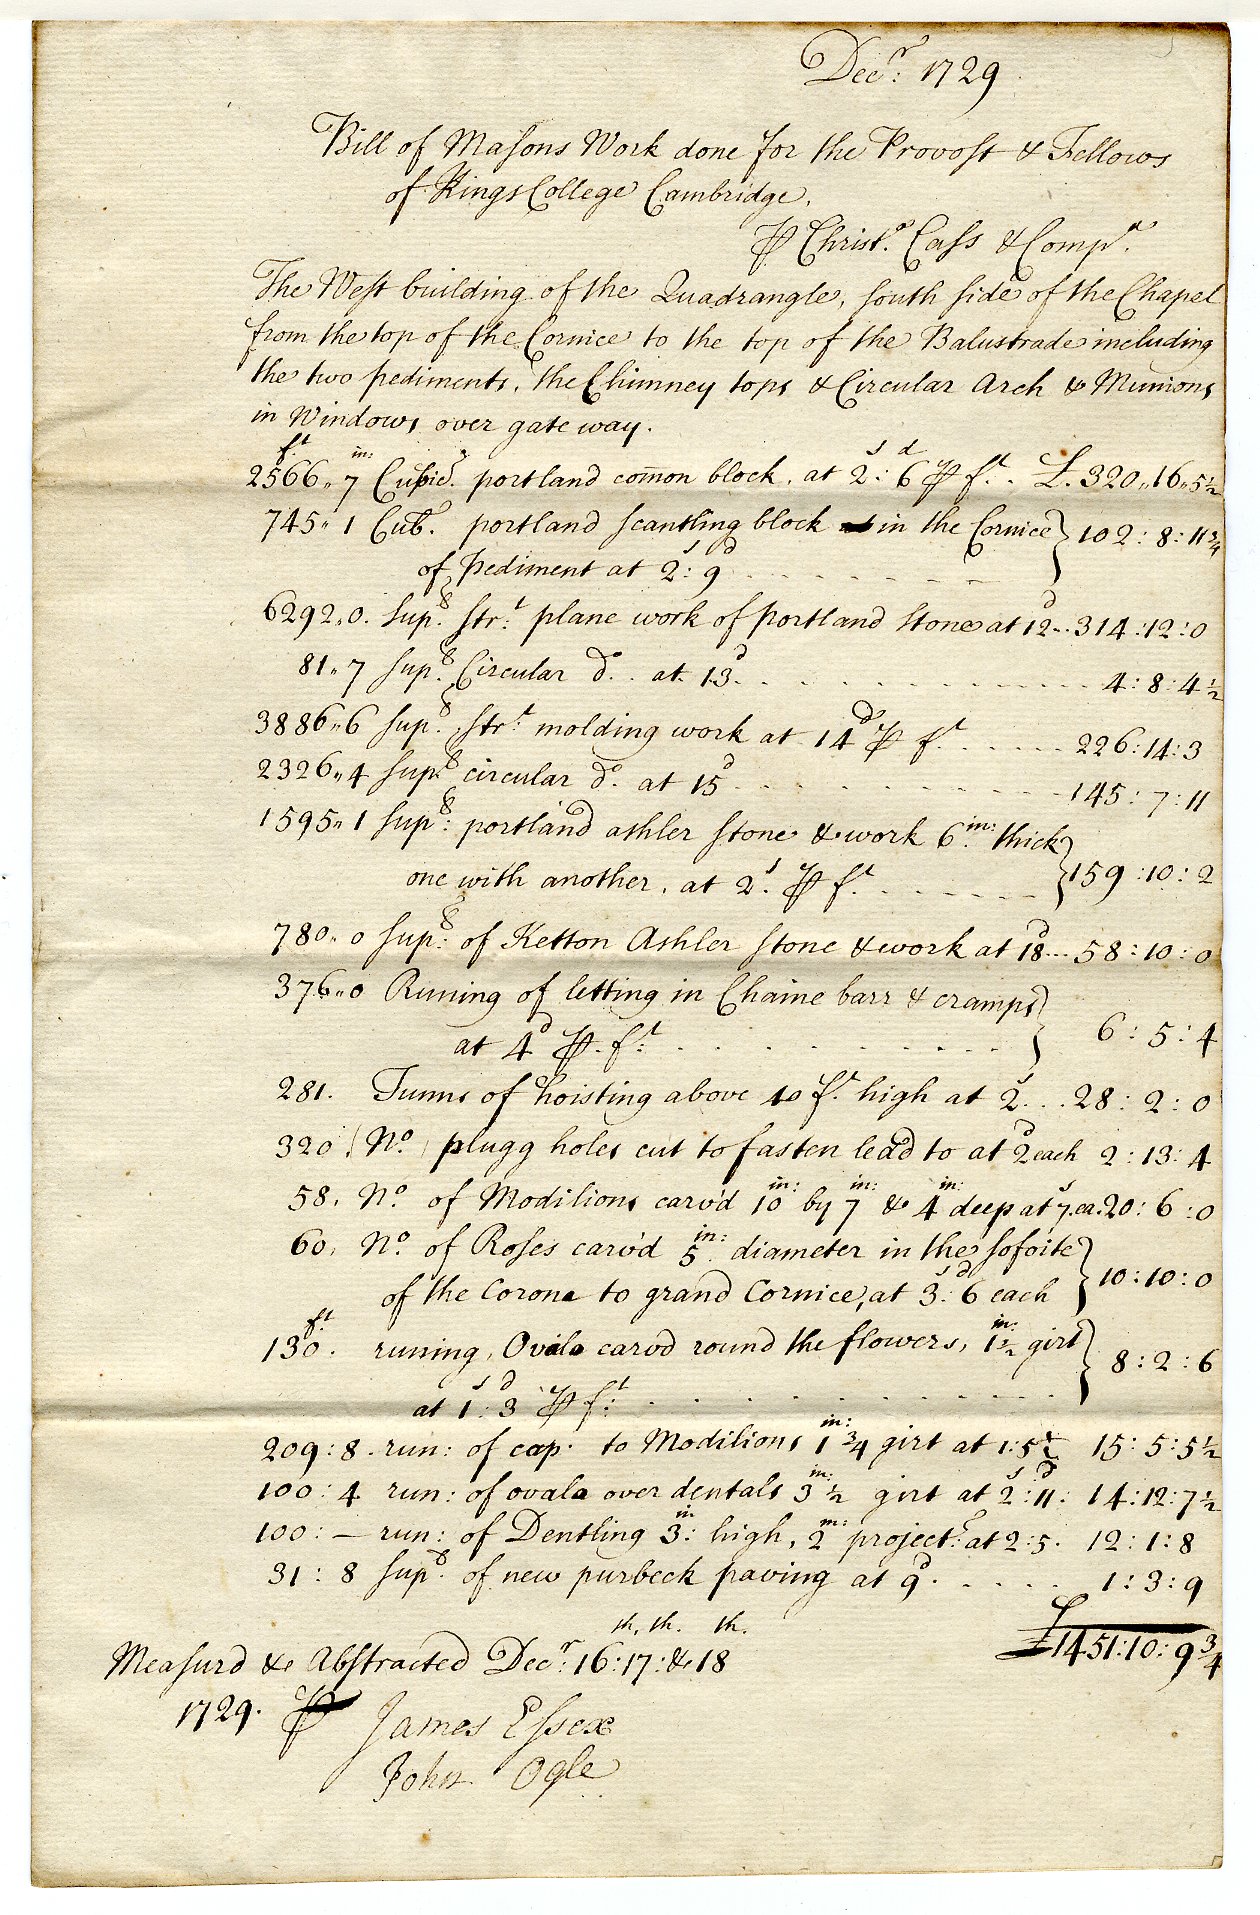 Decr: 1729
Bill of Masons Work done for the Provost & Fellows
of Kings College Cambridge,
⅌ Christo. Cass & Compa.
The West building of the Quadrangle, south side of the Chapel
from the top of the Cornice to the top of the Balustrade including
the two pediments, the Chimney tops & Circular Arch & Munions
in Windows over gate way.
ft in:
2566„ 7 Cubic. portland com̄on block, at 2s: 6d ⅌ ft. £. 320„16„5½
745„ 1 Cub. portland scantling block in the Cornice } 102: 8: 11¾
of pediment at 2s: 9d
6292„0. supl. strt: plane work of portland stone at 12d... 314:12:0
81„7 supl. Circular do. at 13d. 4: 8: 4½
3886„6 supl. strt: molding work at 14d ⅌ ft. 226:14:3
2326„4 supl. circular do. at 15d 145: 7: 11
1595„1 supl: portland ashler stone & work 6in: thick
one with another, at 2s. ⅌ ft. } 159:10:2
780„0 supl: of Ketton Ashler stone & work at 18d... 58:10:0
376„0 Runing of letting in Chaine barr & cramps }
at 4d ⅌. ft: 6: 5: 4
281. Tunns of hoisting above 40 ft. high at 2s... 28: 2: 0
320 (No.) plugg holes cut to fasten lead to at 2d each 2:13:4
58. No. of Modilions carv'd 10in: by 7in: & 4in: deep at 7s. ea. 20: 6:0
60. No. of Roses carv'd 5in: diameter in the sofoite }
of the Corona to grand Cornice, at 3s: 6d each 10:10:0
130ft. runing, Ovala carv'd round the flowers, 1½in: girt } 8:2:6
at 1s: 3d ⅌ ft:
209:8. run: of cap. to Modilions 1¾in: girt at 1:5½ 15: 5:5½
100:4 run: of ovala over dentals 3½in: girt at 2s:11d: 14:12:7½
100:— run: of Dentling 3in: high, 2in: project: at 2:5. 12:1:8
31: 8 supl. of new purbeck paving at 9d. 1:3:9
£1451:10:9¾
Measurd & Abstracted Decr: 16th:17th:& 18th.
1729. ⅌ James Essex
John Ogle